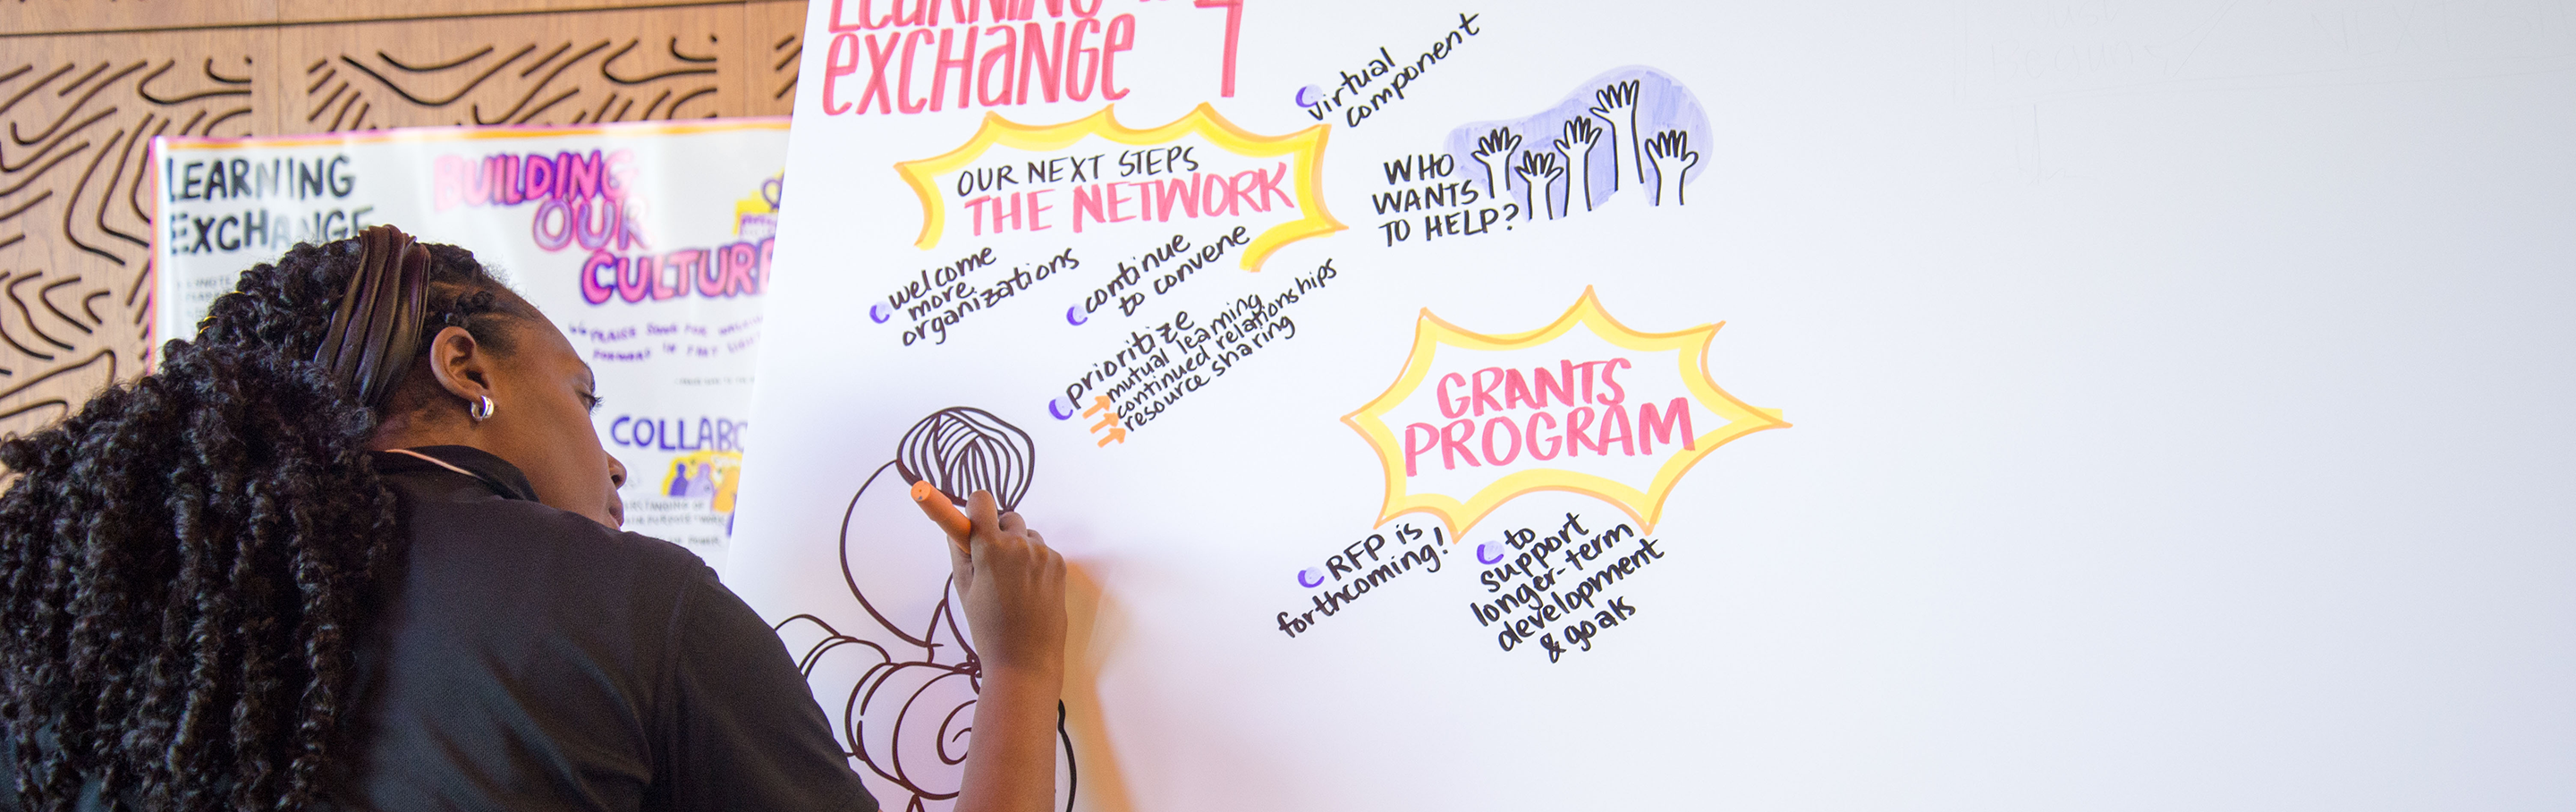 LEARNING
EXCHANGE
OUR NEXT STEPS
THE NETWORK
welcome
more
organizations
continue
to convene
prioritize
mutual learning
continued relationships
resource sharing
virtual
component
WHO
WANTS
TO HELP?
GRANTS
PROGRAM
RFP is
forthcoming!
to
support
longer-term
development
& goals
LEARNING
EXCHANGE
BUILDING
OUR
CULTURE
COLLABO